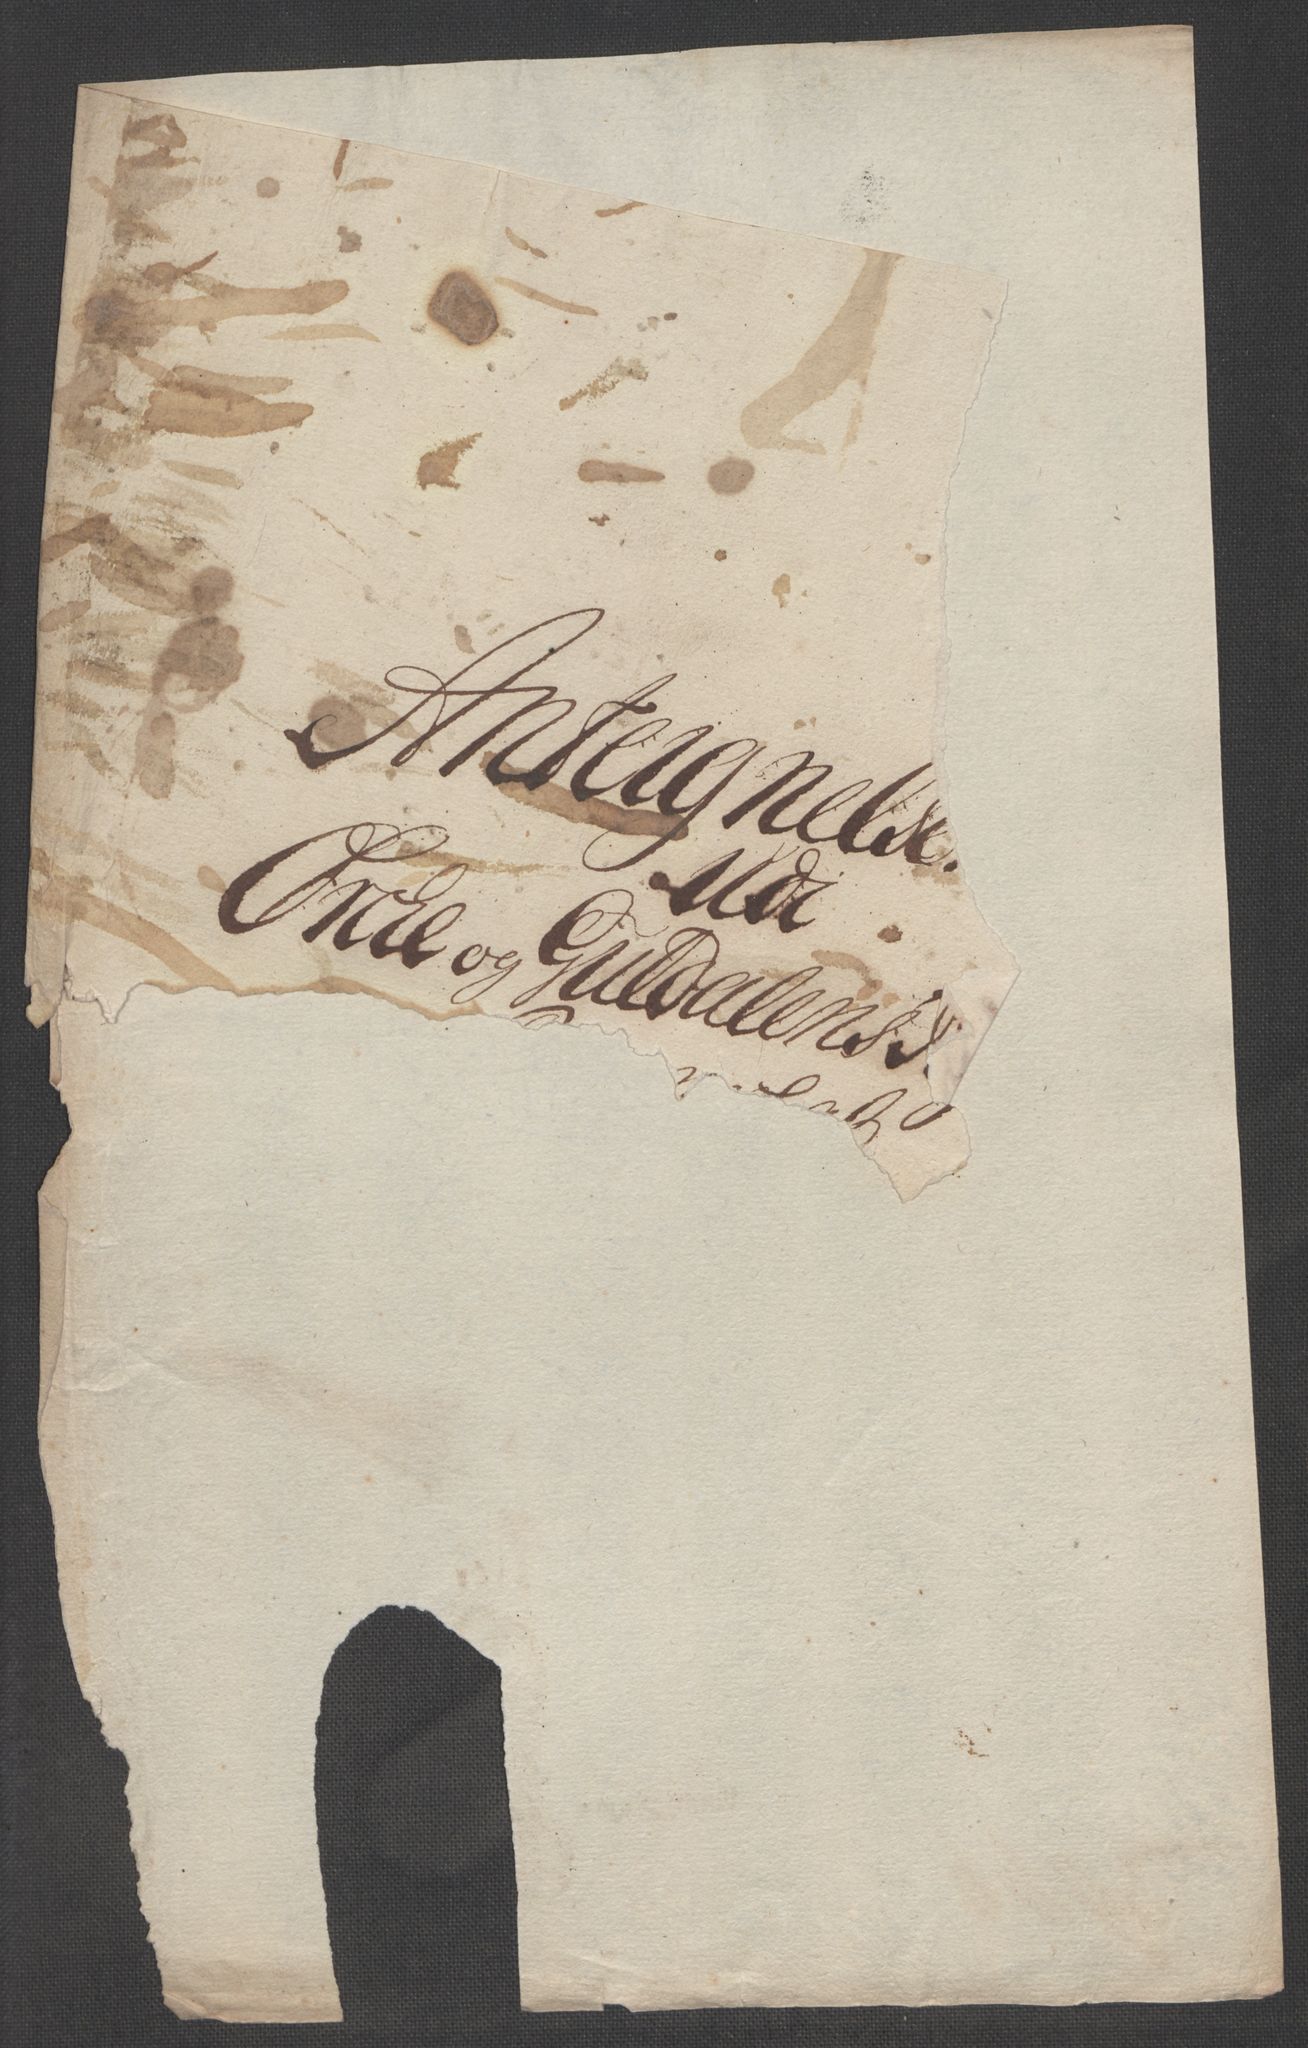 Anteignelse.
udi
Orcke og Guldalens